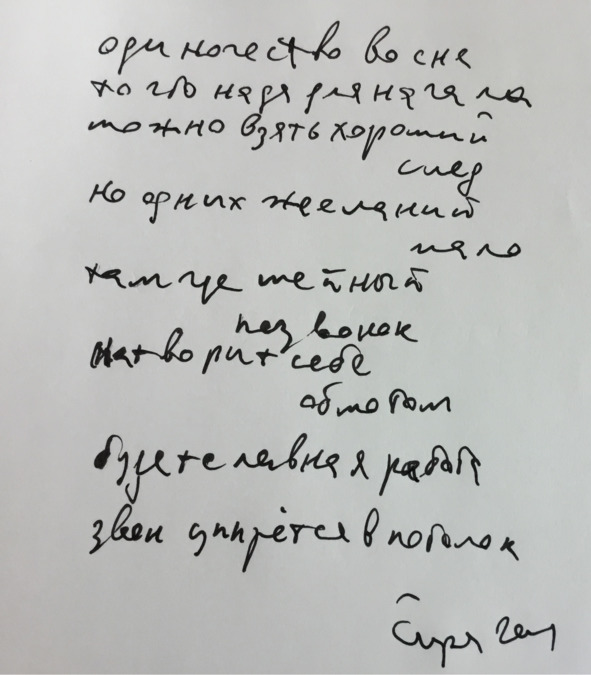 одиночество во сне
кого надо для начала
можно взять хороший
след
но одних желаний
мало
там где шейный
позвонок
натворит себе
обмотом
будет славная работа
звон упрётся в потолок